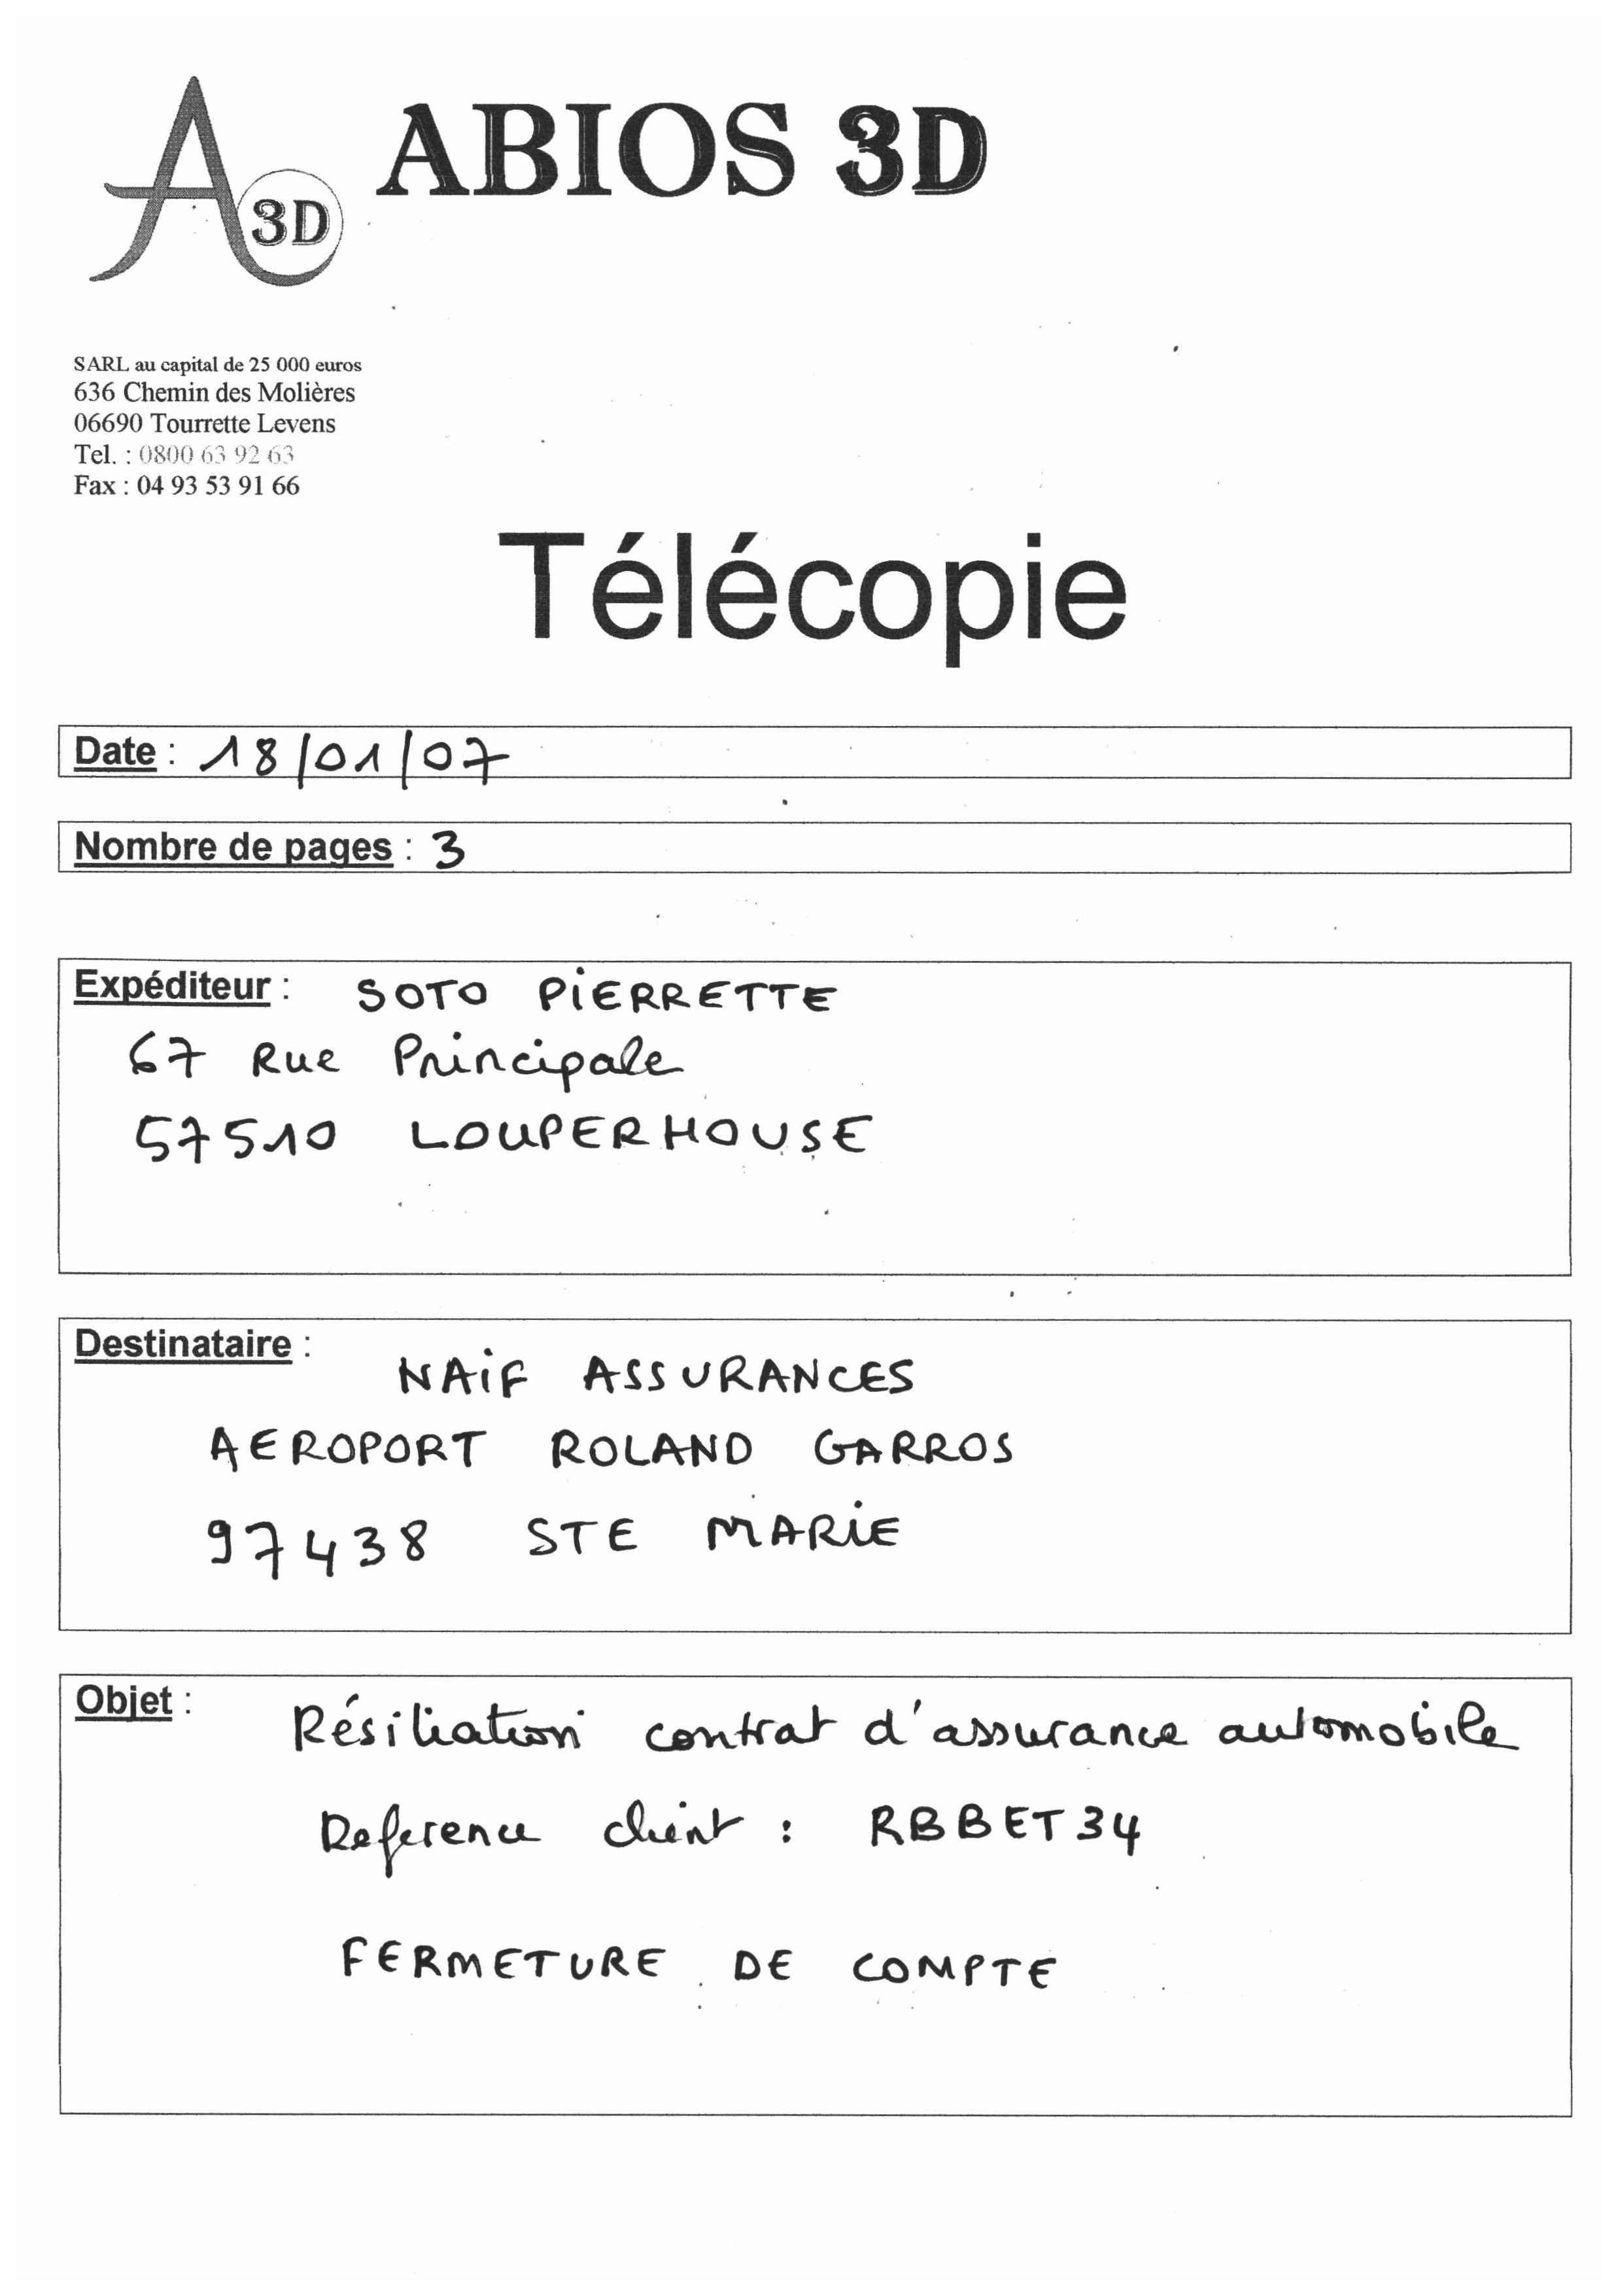 A 3D ABIOS 3D
SARL au capital de 25 000 euros
636 Chemin des Molières
06690 Tourrette Levens
Tel. : 0800 63 92 63
Fax : 04 93 53 91 66
Télécopie
Date : 18/01/07
Nombre de pages : 3
Expéditeur : SOTO PIERRETTE
67 Rue Principale
57510 LOUPERHOUSE
Destinataire :
NAIF ASSURANCES
AEROPORT ROLAND GARROS
97438 STE MARIE
Objet :
Résiliation contrat d'assurance automobile
Reference client : RBBET34
FERMETURE DE COMPTE